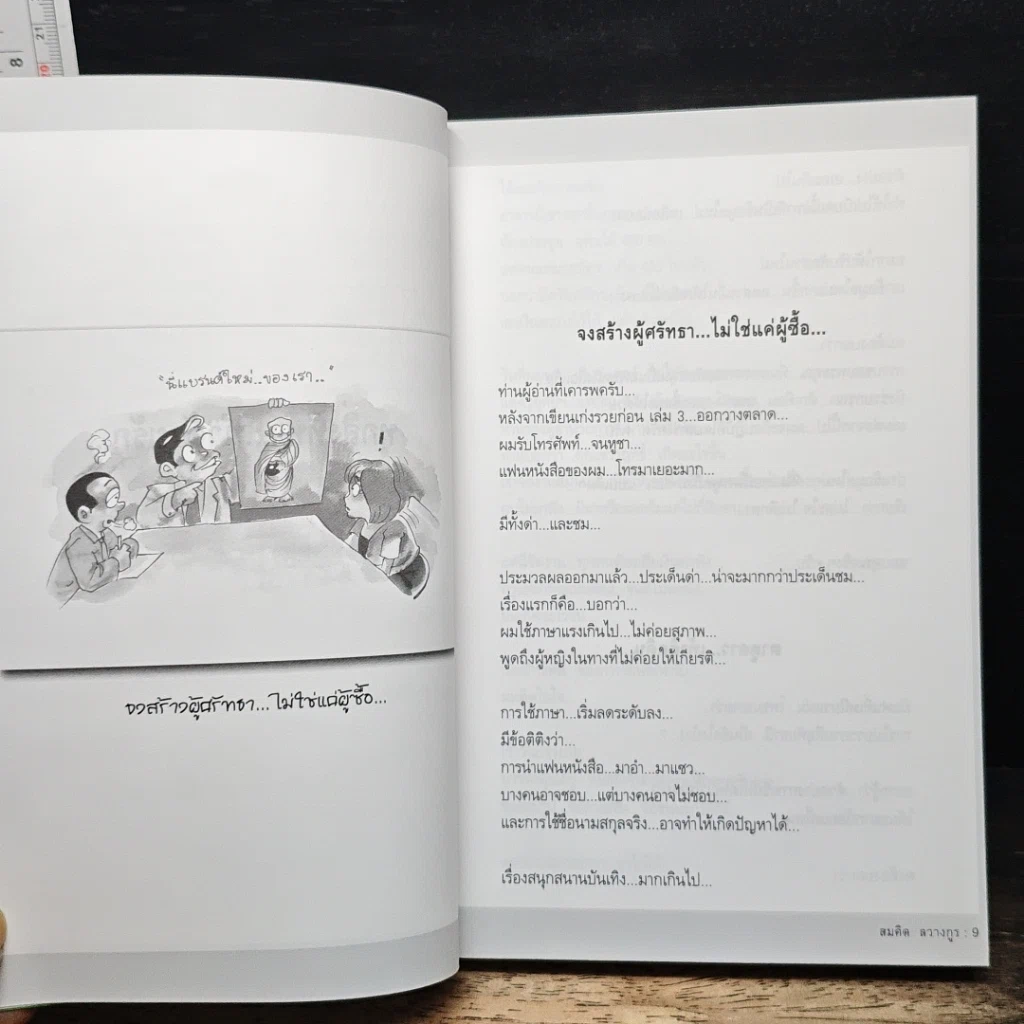 8
21
"นี่แบรนด์ใหม่..ของเรา.."
!
จงสร้างผู้ศรัทธา...ไม่ใช่แค่ผู้ซื้อ...
จงสร้างผู้ศรัทธา...ไม่ใช่แค่ผู้ซื้อ...
ท่านผู้อ่านที่เคารพครับ...
หลังจากเขียนเก่งรวยก่อน เล่ม 3...ออกวางตลาด...
ผมรับโทรศัพท์...จนหูชา...
แฟนหนังสือของผม...โทรมาเยอะมาก...
มีทั้งด่า...และชม...
ประมวลผลออกมาแล้ว...ประเด็นด่า...น่าจะมากกว่าประเด็นชม...
เรื่องแรกก็คือ...บอกว่า...
ผมใช้ภาษาแรงเกินไป...ไม่ค่อยสุภาพ...
พูดถึงผู้หญิงในทางที่ไม่ค่อยให้เกียรติ...
การใช้ภาษา...เริ่มลดระดับลง...
มีข้อติติงว่า...
การนำแฟนหนังสือ...มาอำ...มาแซว...
บางคนอาจชอบ...แต่บางคนอาจไม่ชอบ...
และการใช้ชื่อนามสกุลจริง...อาจทำให้เกิดปัญหาได้...
เรื่องสนุกสนานบันเทิง...มากเกินไป...
สมคิด ลวางกูร : 9